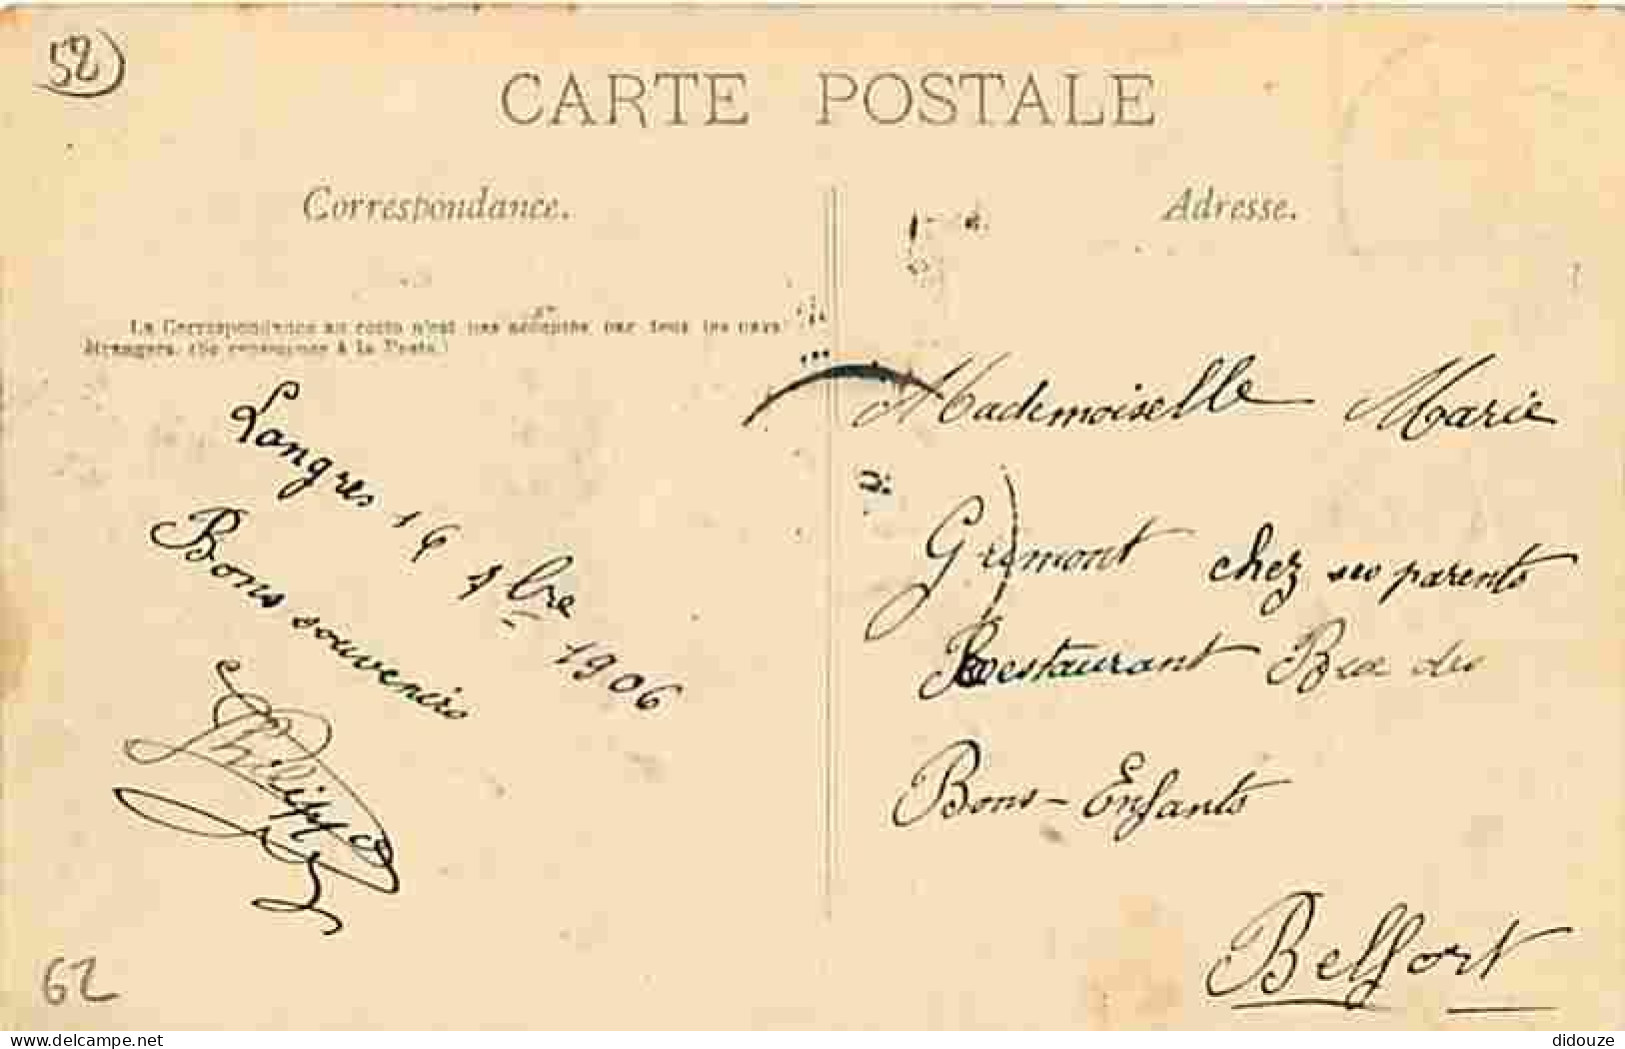 52
CARTE POSTALE
Correspondance.
Adresse.
La Correspondance au recto n'est pas acceptée par tous les pays
étrangers. (Se renseigner à la Poste.)
Langres 16 1bre 1906
Bons souvenirs
Philippe
Mademoiselle Marie
Gremont chez ses parents
Restaurant Rue des
Bons-Enfants
Belfort
62
delcampe.net
didouze